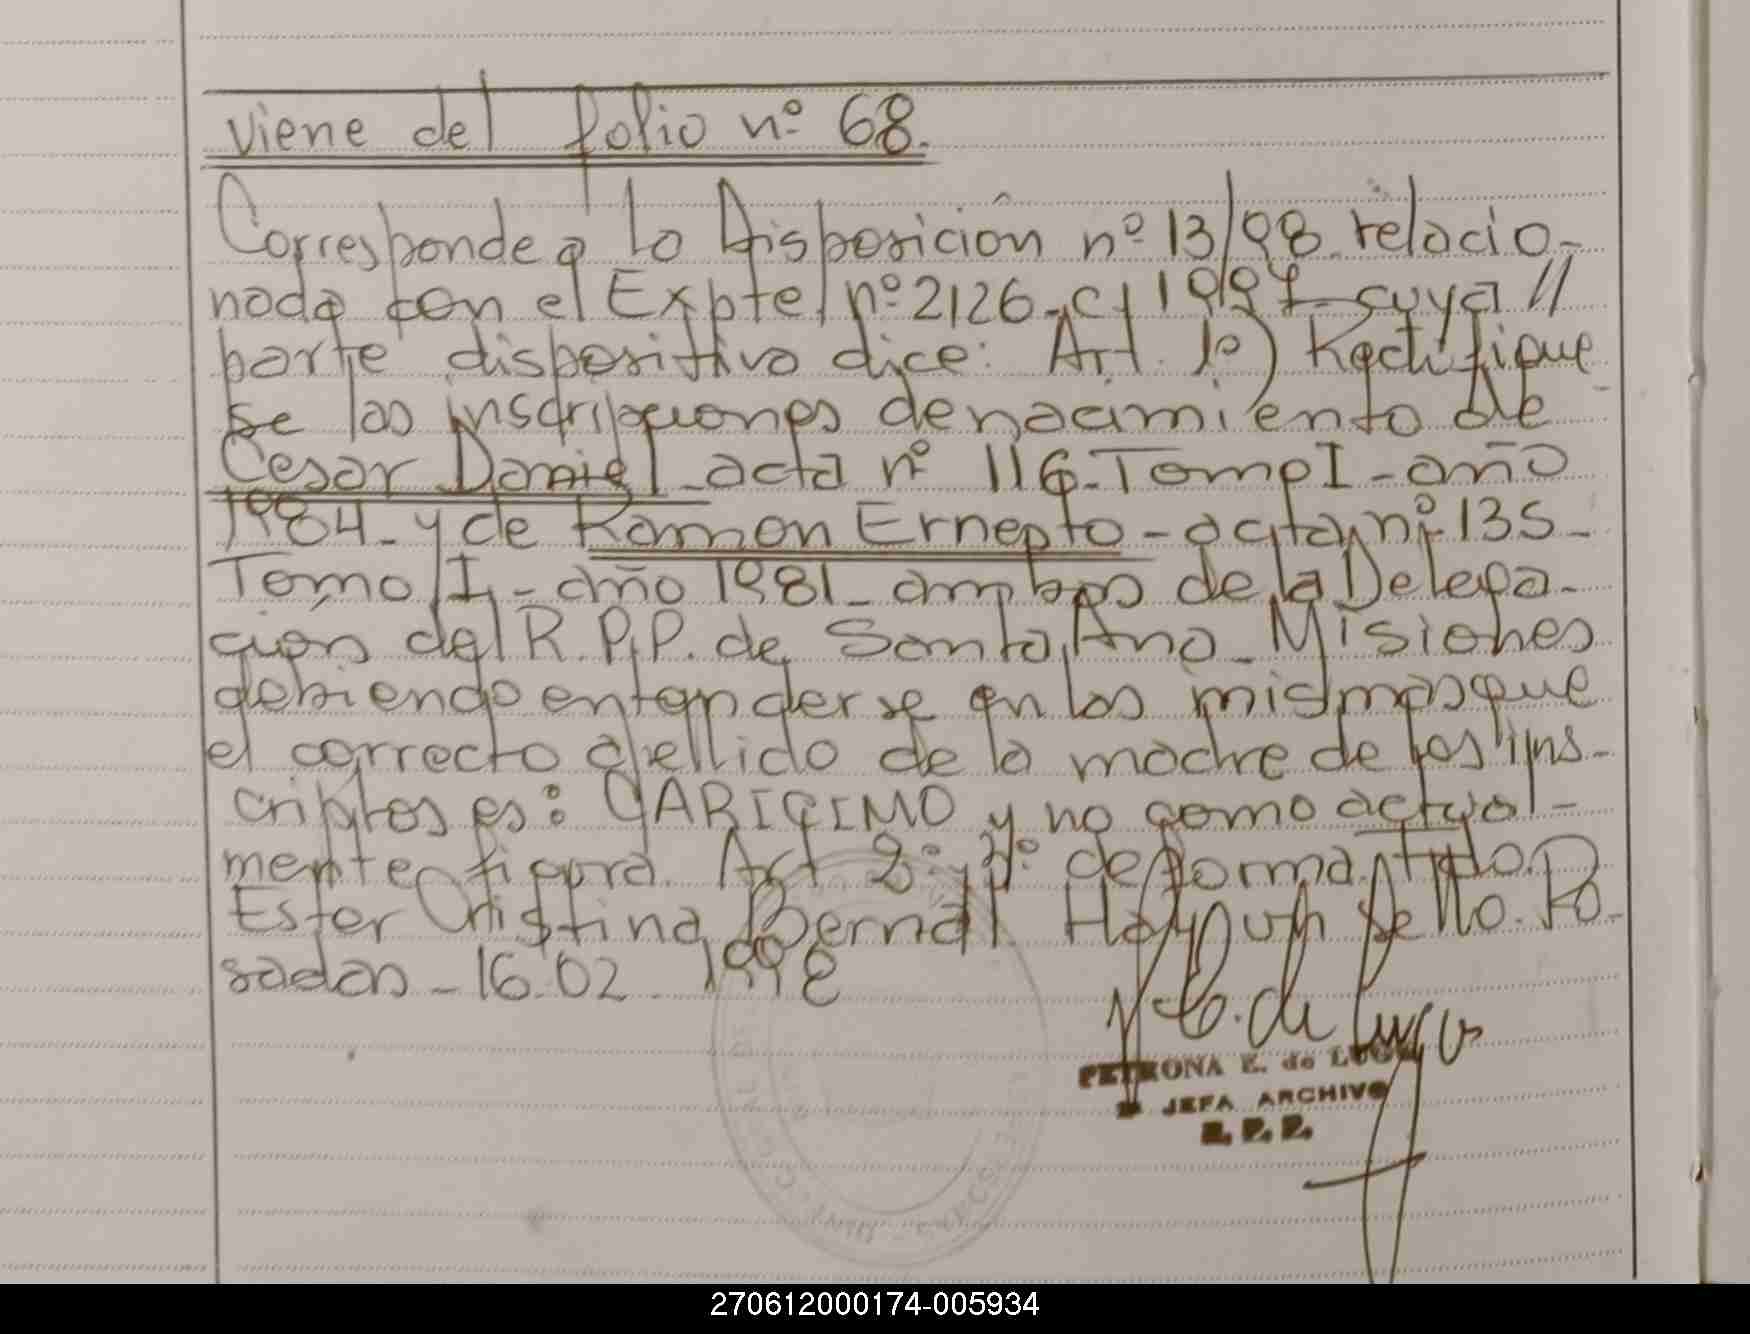 Viene del folio nº 68.
Corresponde a la Disposición nº 13/98 relacio-
nada con el Expte nº 2126-c/1997 cuya //
parte dispositiva dice: Art. 1º) Rectifique
se las inscripciones de nacimiento de
Cesar Daniel acta nº 116-Tomo I-año
1984-y de Ramon Ernesto-acta nº 135-
Tomo I-año 1981-ambos de la Delega-
cion del R.P.P. de Santa Ana-Misiones
debiendo entenderse en las mismas que
el correcto apellido de la madre de los ins-
criptos es: GARICIMO y no como actual-
mente figura. Art 2º y 3º de forma.
Ester Cristina Bernal. Hay un sello. Po-
sadas-16-02-1998
PETRONA E. de LUGO
JEFA ARCHIVO
R. P. P.
270612000174-005934